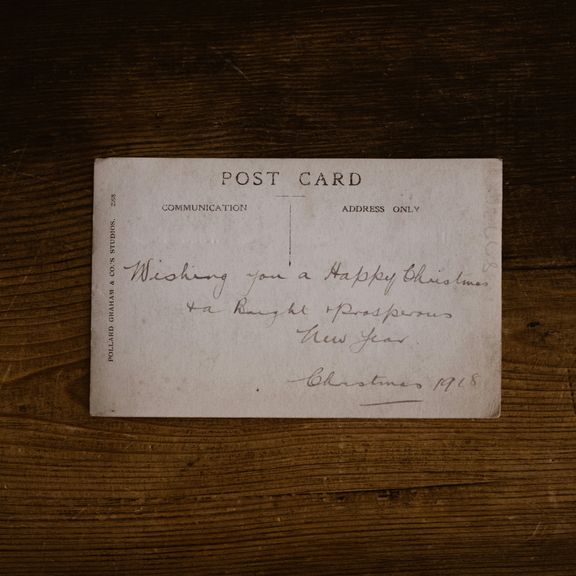 POST CARD
COMMUNICATION
ADDRESS ONLY
POLLARD GRAHAM & CO.'S STUDIOS.
Wishing you a Happy Christmas
+ a Bright + Prosperous
New Year.
Christmas 1918